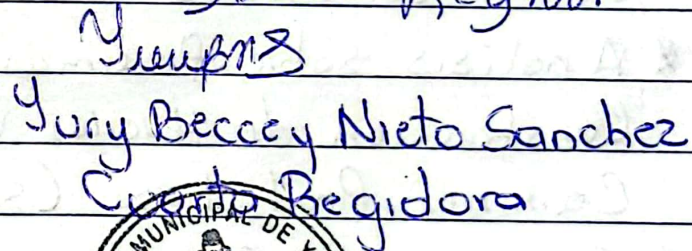 Yury Beccey Nieto Sanchez
Cuarto Regidora
MUNICIPAL DE